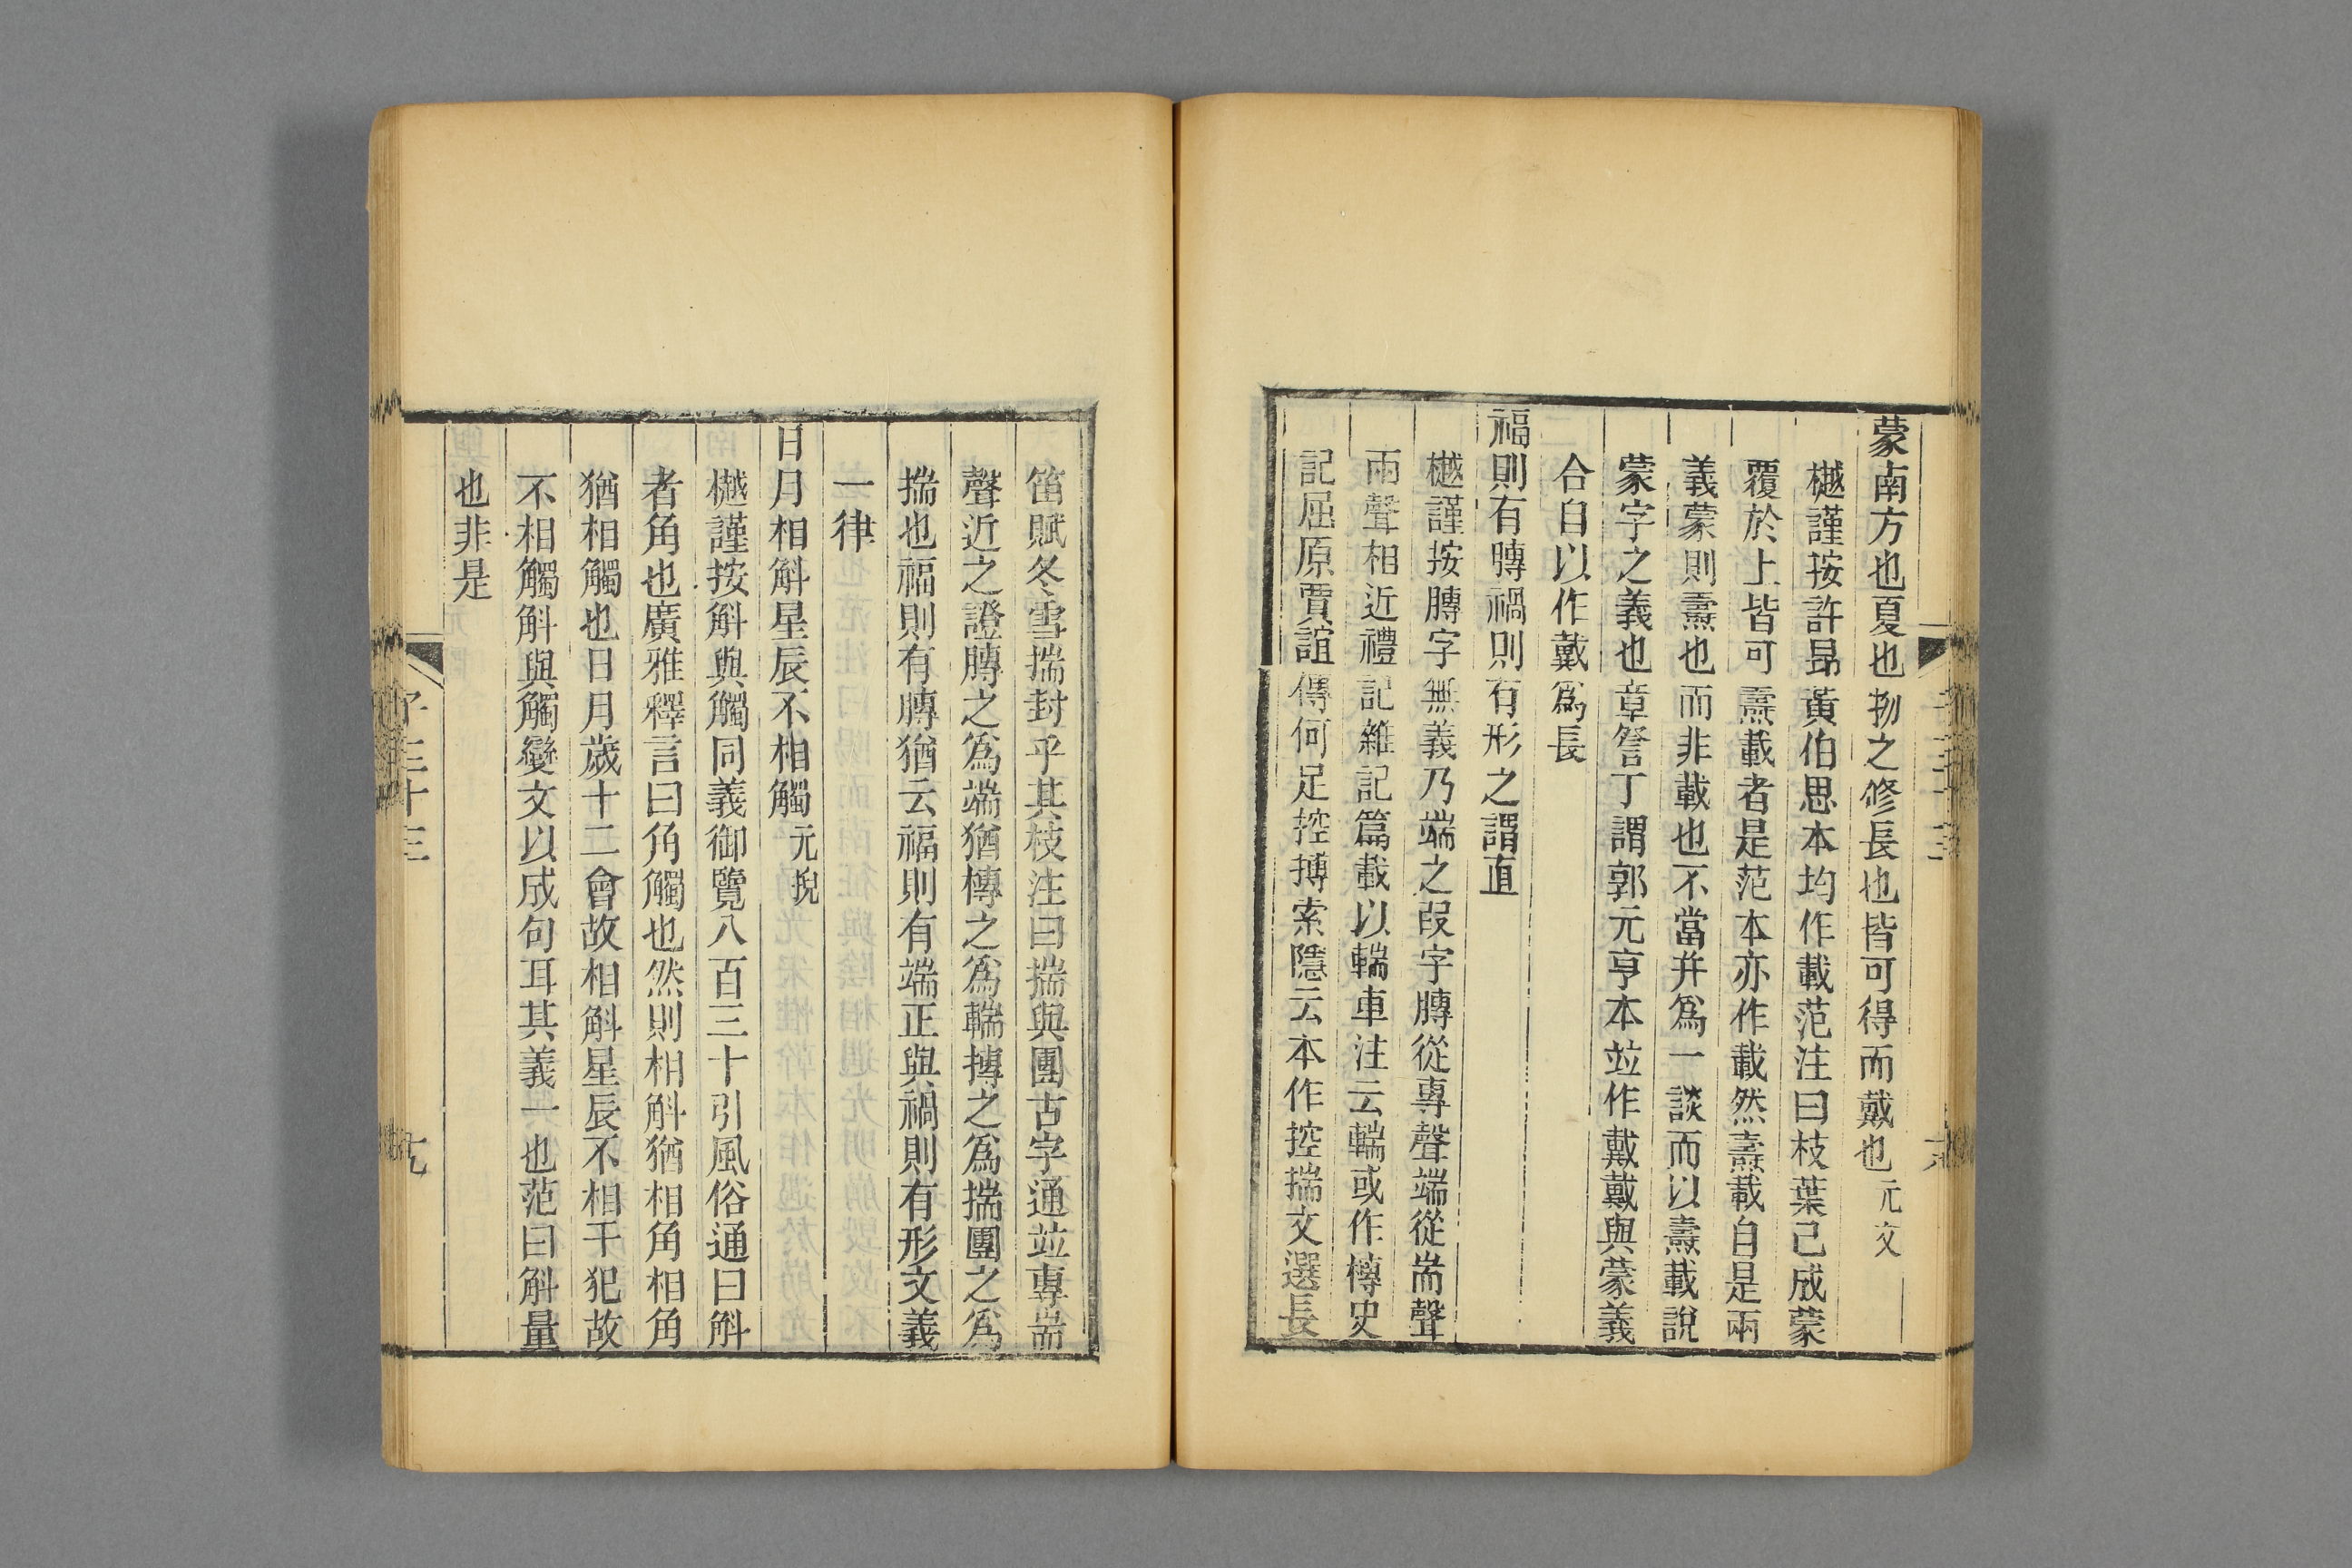 蒙南方也夏也物之修長也皆可得而戴也元文
樾謹按許昂黃伯思本均作載范注曰枝葉己成蒙
覆於上皆可燾載者是范本亦作載然燾載自是兩
義蒙則燾也而非載也不當并爲一談而以燾載說
蒙字之義也章詧丁謂郭元亨本竝作戴戴與蒙義
合自以作戴爲長
福則有膞禍則有形之謂直
樾謹按膞字無義乃端之叚字膞從專聲端從耑聲
兩聲相近禮記雜記篇載以輲車注云輲或作槫史
記屈原賈誼傳何足控摶索隱云本作控揣文選長
笛賦冬雪揣封乎其枝注曰揣與團古字通竝專耑
聲近之證膞之爲端猶槫之爲輲摶之爲揣團之爲
揣也福則有膞猶云福則有端正與禍則有形文義
一律
日月相斛星辰不相觸元掜
樾謹按斛與觸同義御覽八百三十引風俗通曰斛
者角也廣雅釋言曰角觸也然則相斛猶相角相角
猶相觸也日月歲十二會故相斛星辰不相干犯故
不相觸斛與觸變文以成句耳其義一也范曰斛量
也非是